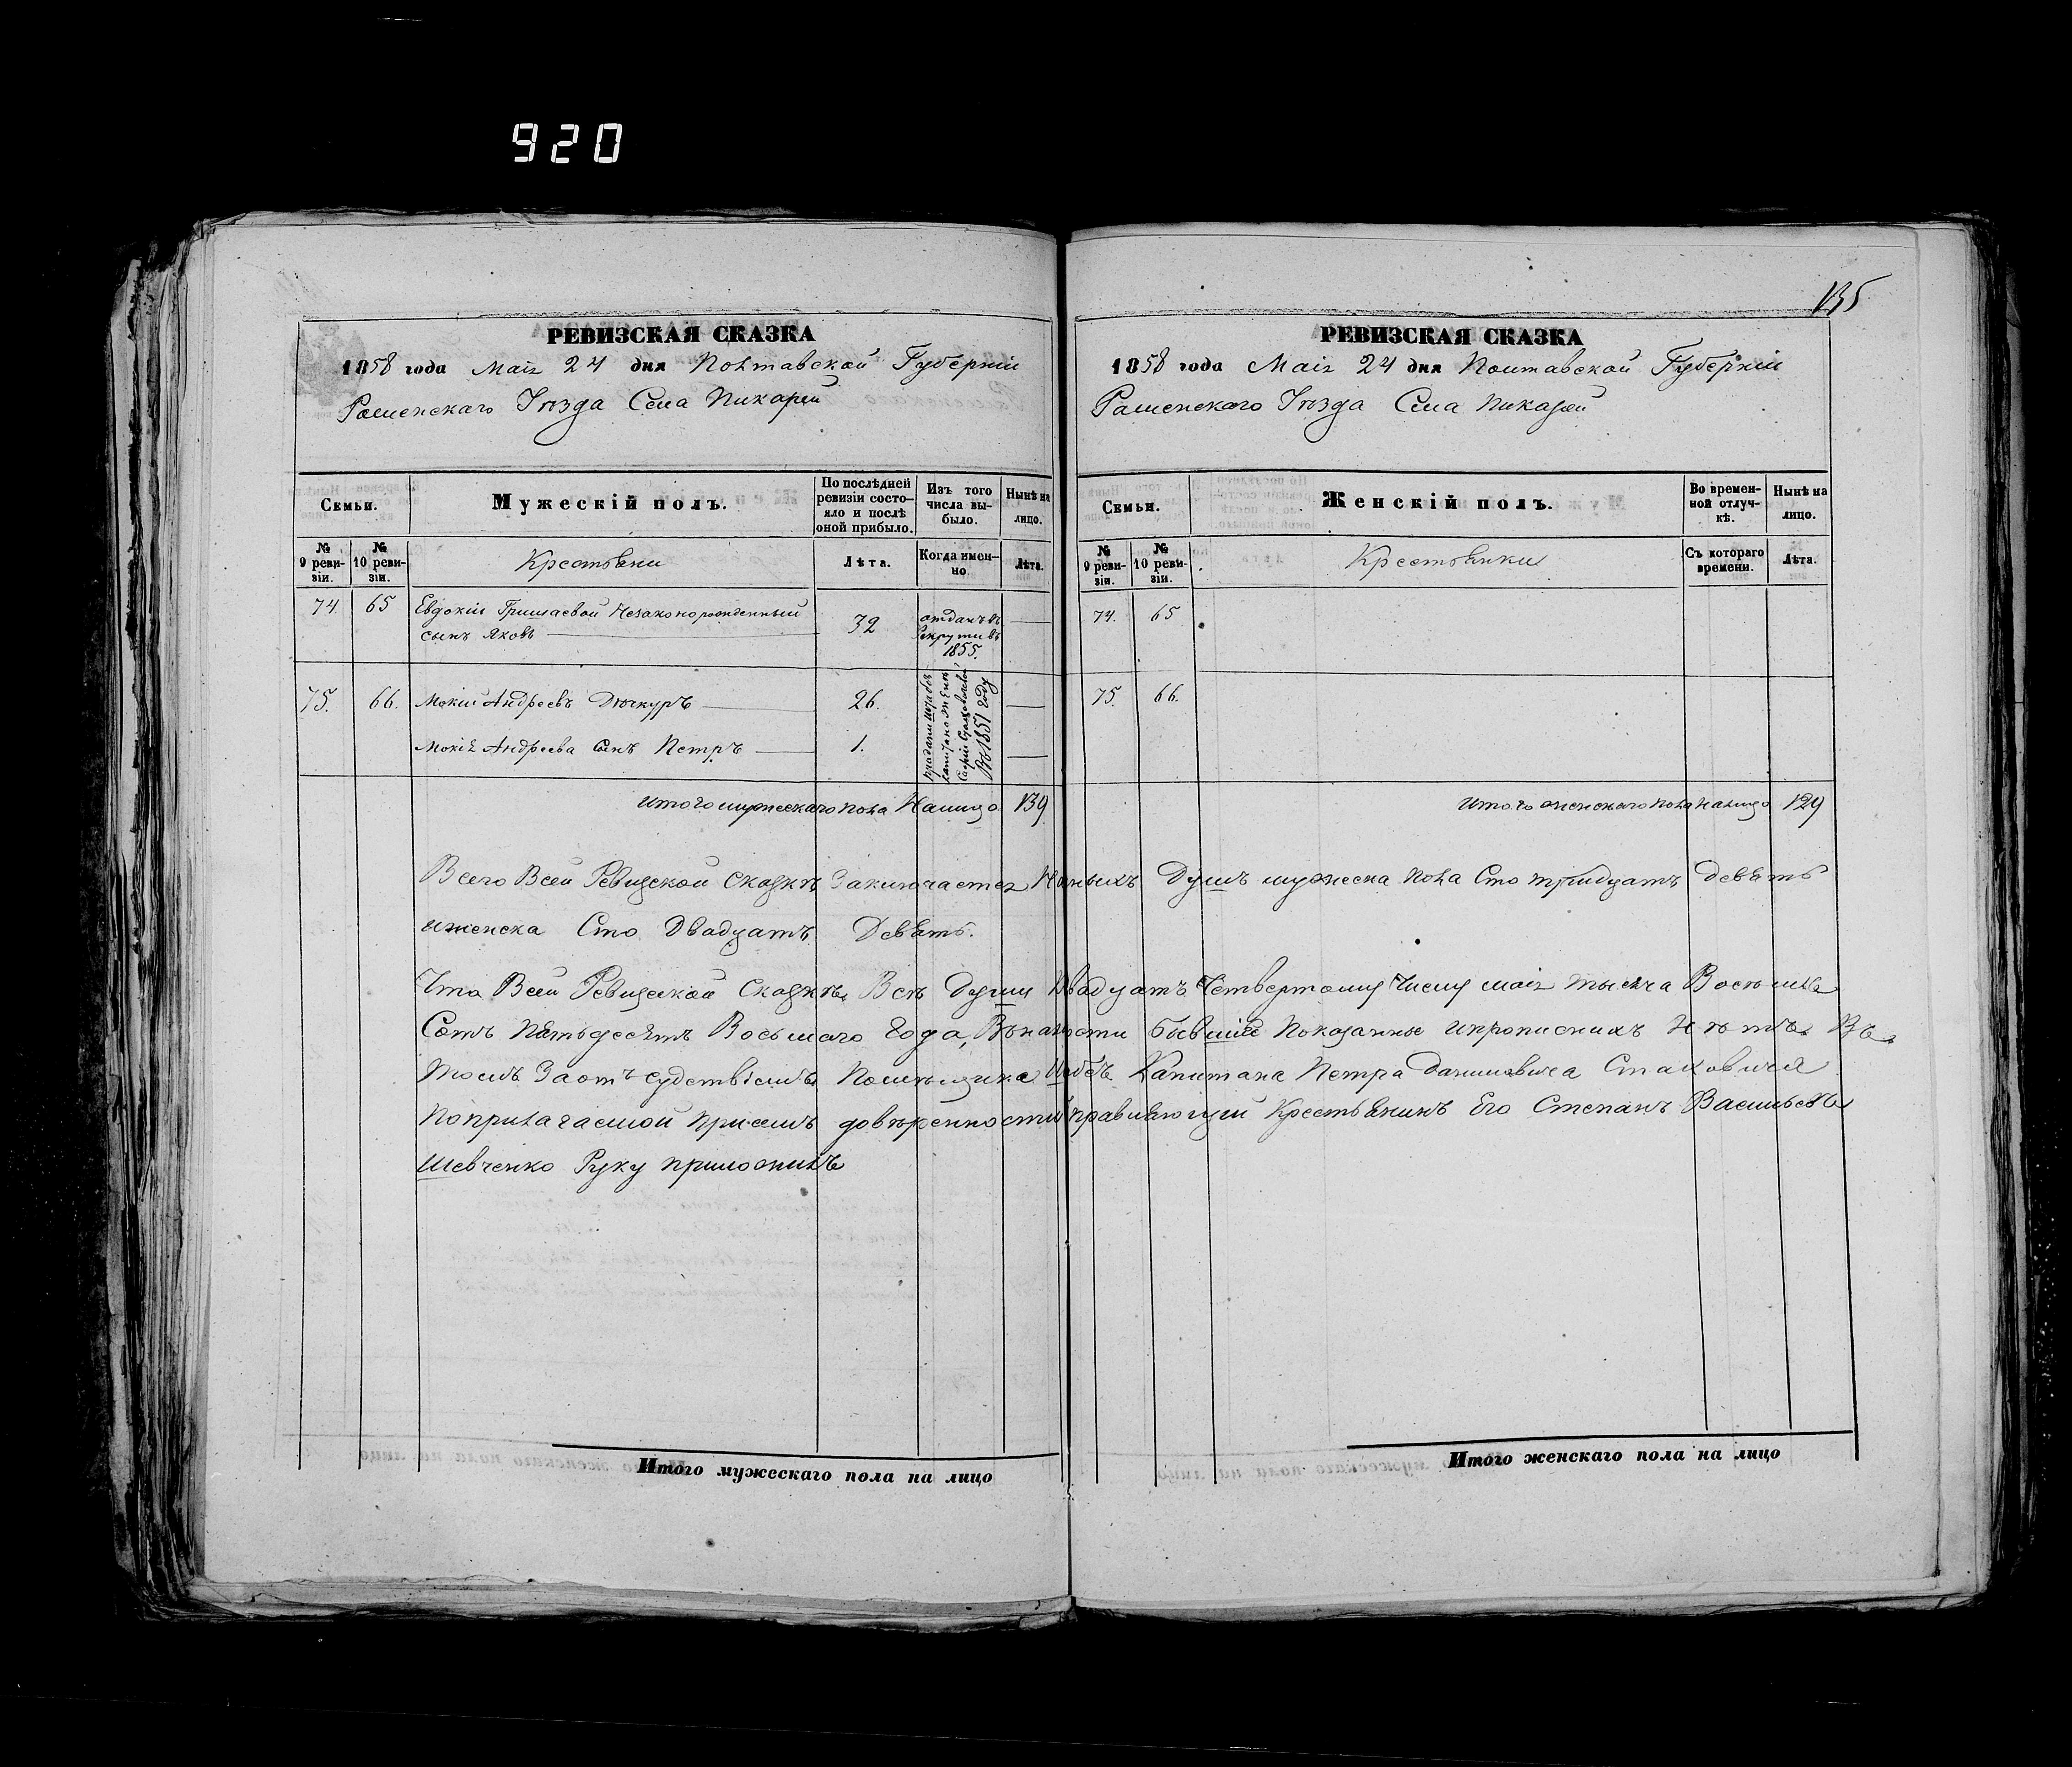 920
135
РЕВИЗСКАЯ СКАЗКА
1858 года Маія 24 дня Полтавской Губерніи
Роменскаго Уѣзда Села Пикарей
Семьи.
Мужескій полъ.
По послѣдней ревизіи состо-
яло и послѣ оной прибыло.
Изъ того числа вы-
было.
Нынѣ на лицо.
№ 9 реви-
зіи.
№ 10 реви-
зіи.
Крестьяни
Лѣта.
Когда имен-
но
Лѣта.
74 65 Евдокіи Гришаевой Незаконорожденный
сынъ Яковъ 32
отданъ въ
Рекрути въ
1855.
75. 66. Мокій Андреевъ 26.
Мокія Андреева Сынъ Петръ 1.
Въ 1851 году
итого мужескаго пола Налицо 139
РЕВИЗСКАЯ СКАЗКА
1858 года Маія 24 дня Полтавской Губерніи
Роменскаго Уѣзда Села Пикарей
Семьи.
Женскій полъ.
Во времен-
ной отлуч-
кѣ.
Нынѣ на лицо.
№ 9 реви-
зіи.
№ 10 реви-
зіи.
Крестьянки
Съ котораго времени.
Лѣта.
74. 65
75. 66.
итого женскаго пола налицо 129
Всего Всей Ревизской сказкѣ Заключается Наличныхъ Душъ мужеска пола Сто тридцать девять
иженска Сто Двадцать Девять.
Что Всей Ревизской Сказкѣ Всѣ Души Двадцать Четвертому Числу маія тысяча Восемь
Сотъ Пятьдесятъ Восьмаго Года, Вналичности бывшіе Показанные ипрописнихъ Нѣтъ Въ
томъ Заотъсудствіемъ Помѣщика Штабъ Капитана Петра Даниловича Стаховича
Поприлагаемой присемъ довѣренности правляющій Крестьянинъ Его Степанъ Васильевъ
Шевченко Руку приложилъ
Итого мужескаго пола на лицо
Итого женскаго пола на лицо